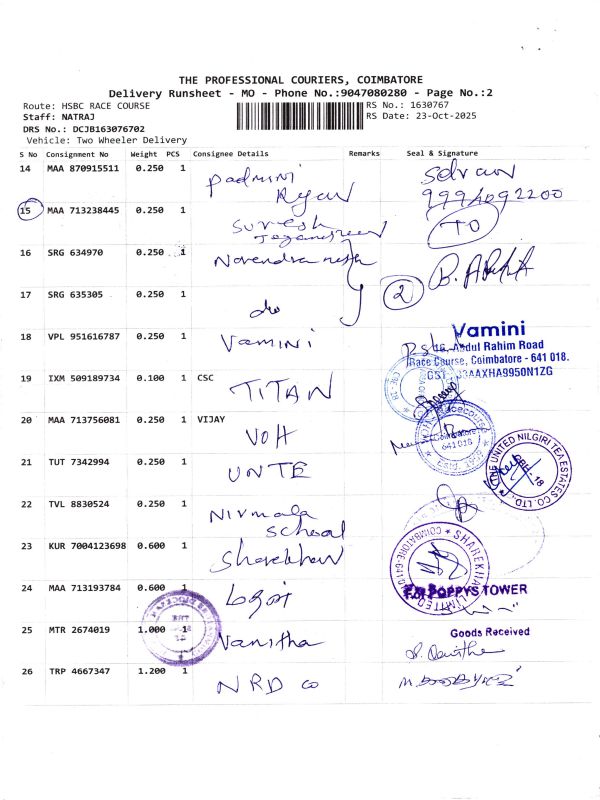 THE PROFESSIONAL COURIERS, COIMBATORE
Delivery Runsheet - MO - Phone No.:9047080280 - Page No.:2
Route: HSBC RACE COURSE RS No.: 1630767
Staff: NATRAJ RS Date: 23-Oct-2025
DRS No.: DCJB163076702
Vehicle: Two Wheeler Delivery
S No Consignment No Weight PCS Consignee Details Remarks Seal & Signature
14 MAA 870915511 0.250 1 Padmini
15 MAA 713238445 0.250 1 Suresh TO
16 SRG 634970 0.250 1 Narendra
17 SRG 635305 0.250 1 do 2
18 VPL 951616787 0.250 1 Vamini
Vamini
16, Abdul Rahim Road
Race Course, Coimbatore - 641 018.
19 IXM 509189734 0.100 1 CSC TITAN
20 MAA 713756081 0.250 1 VIJAY VOH
Racecourse
Coimbatore
641 018
21 TUT 7342994 0.250 1 UNTE
THE UNITED NILGIRI TEA ESTATES CO. LTD.
CBE-18
22 TVL 8830524 0.250 1 Nirmala School
23 KUR 7004123698 0.600 1 Sharekhan
SHAREKHAN LIMITED
24 MAA 713193784 0.600 1
For POPPYS TOWER
25 MTR 2674019 1.000 1 Vanitha
Goods Received
26 TRP 4667347 1.200 1 NRD Co